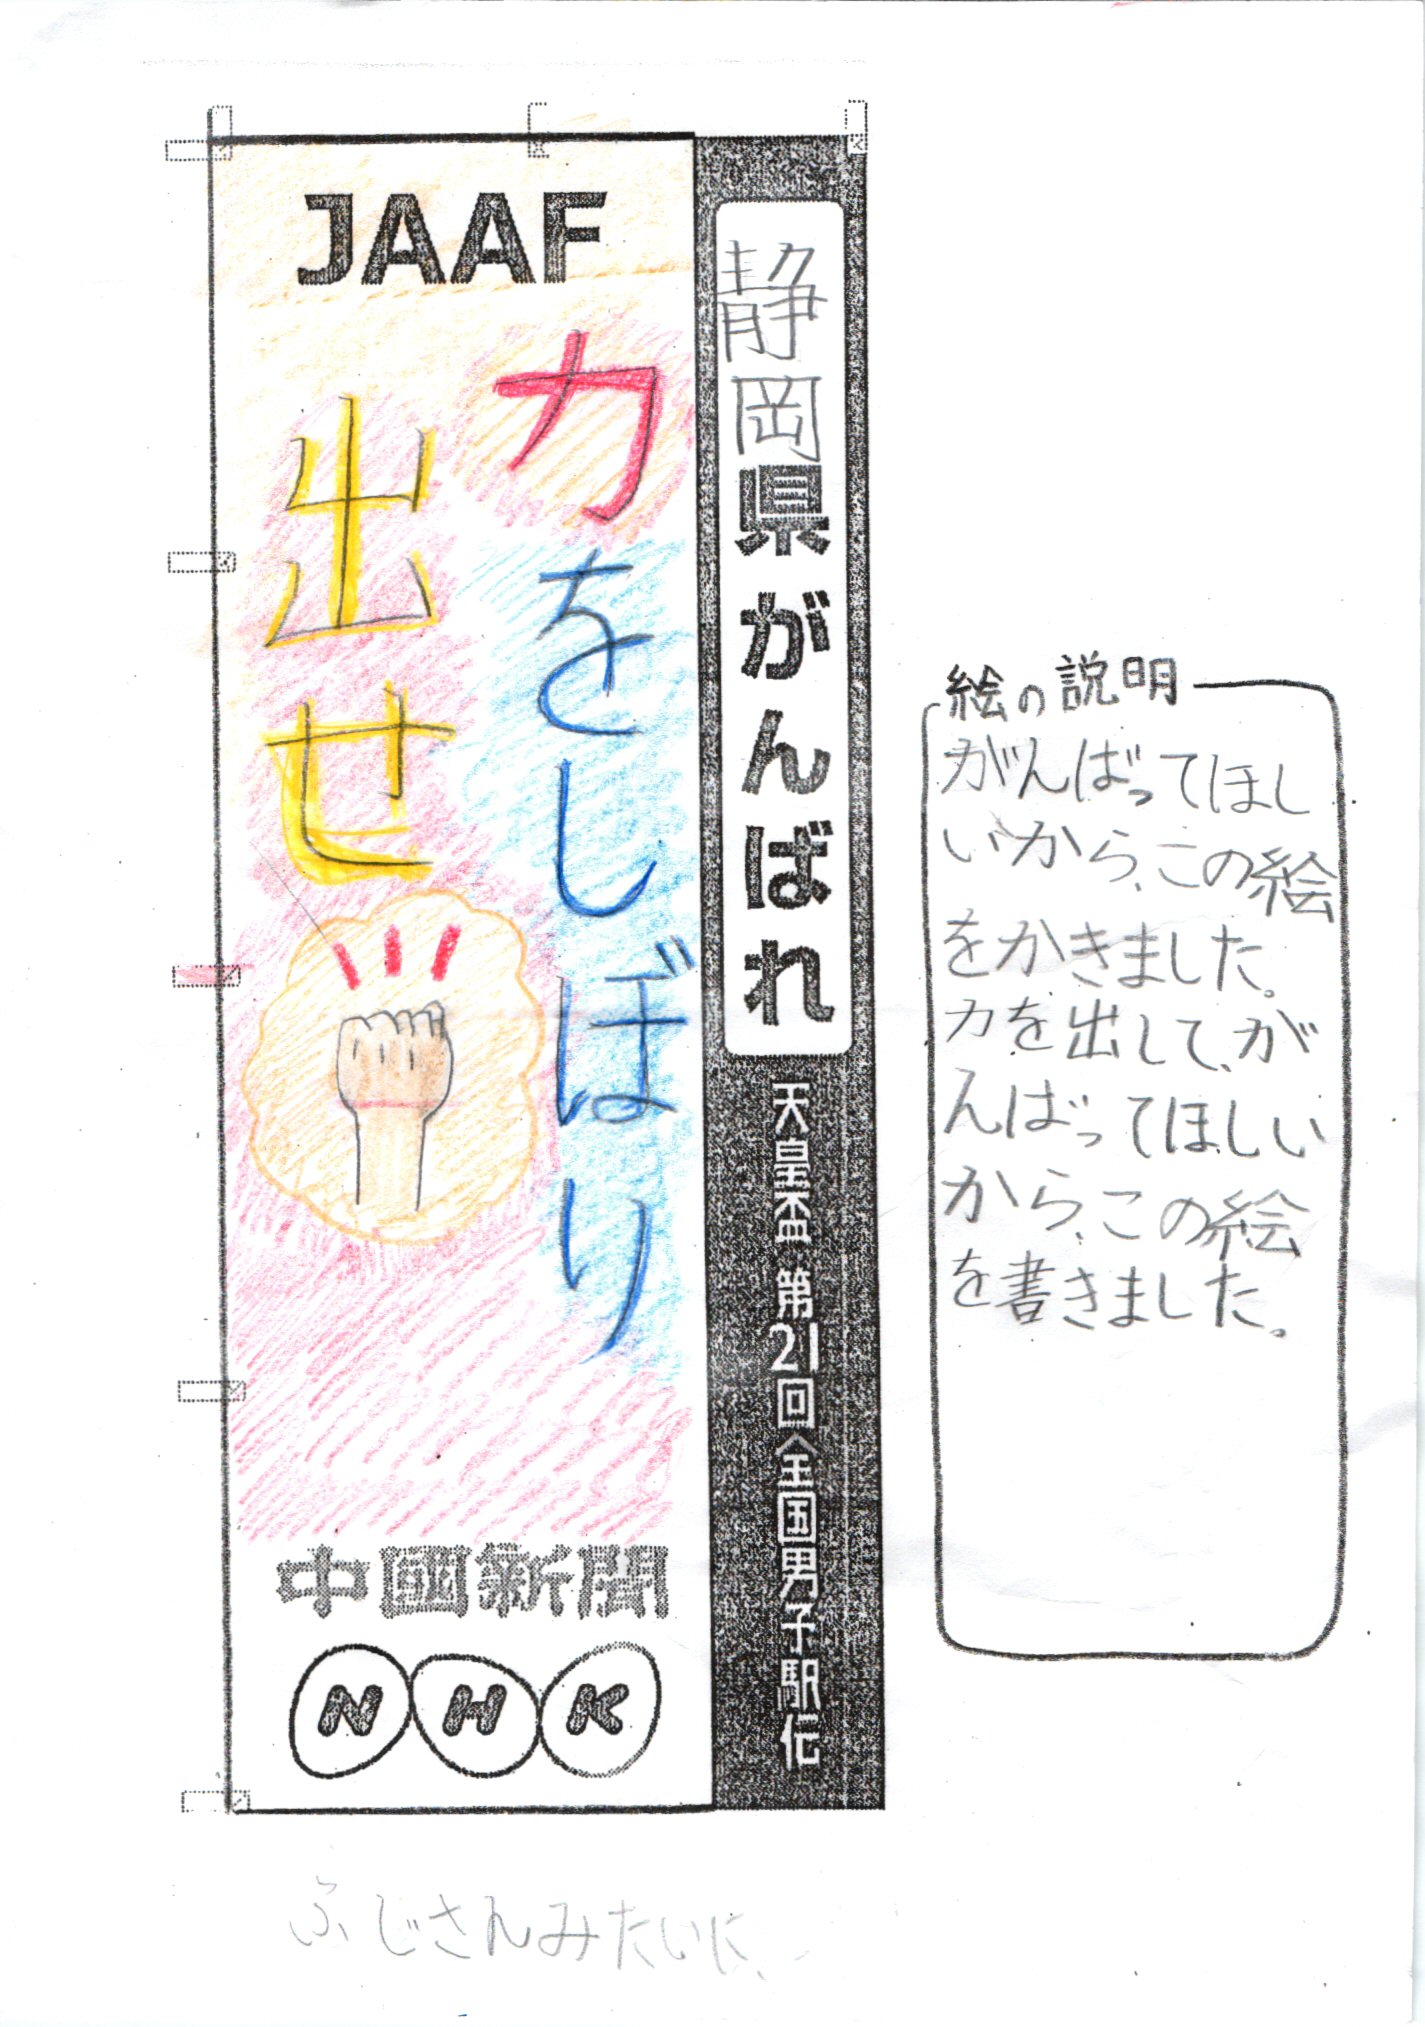 JAAF
力をしぼり
出せ
静岡県がんばれ
天皇盃 第21回全国男子駅伝
中國新聞
NHK
絵の説明
がんばってほし
いから、この絵
をかきました。
力を出して、が
んばってほしい
から、この絵
を書きました。
ふじさんみたいに、